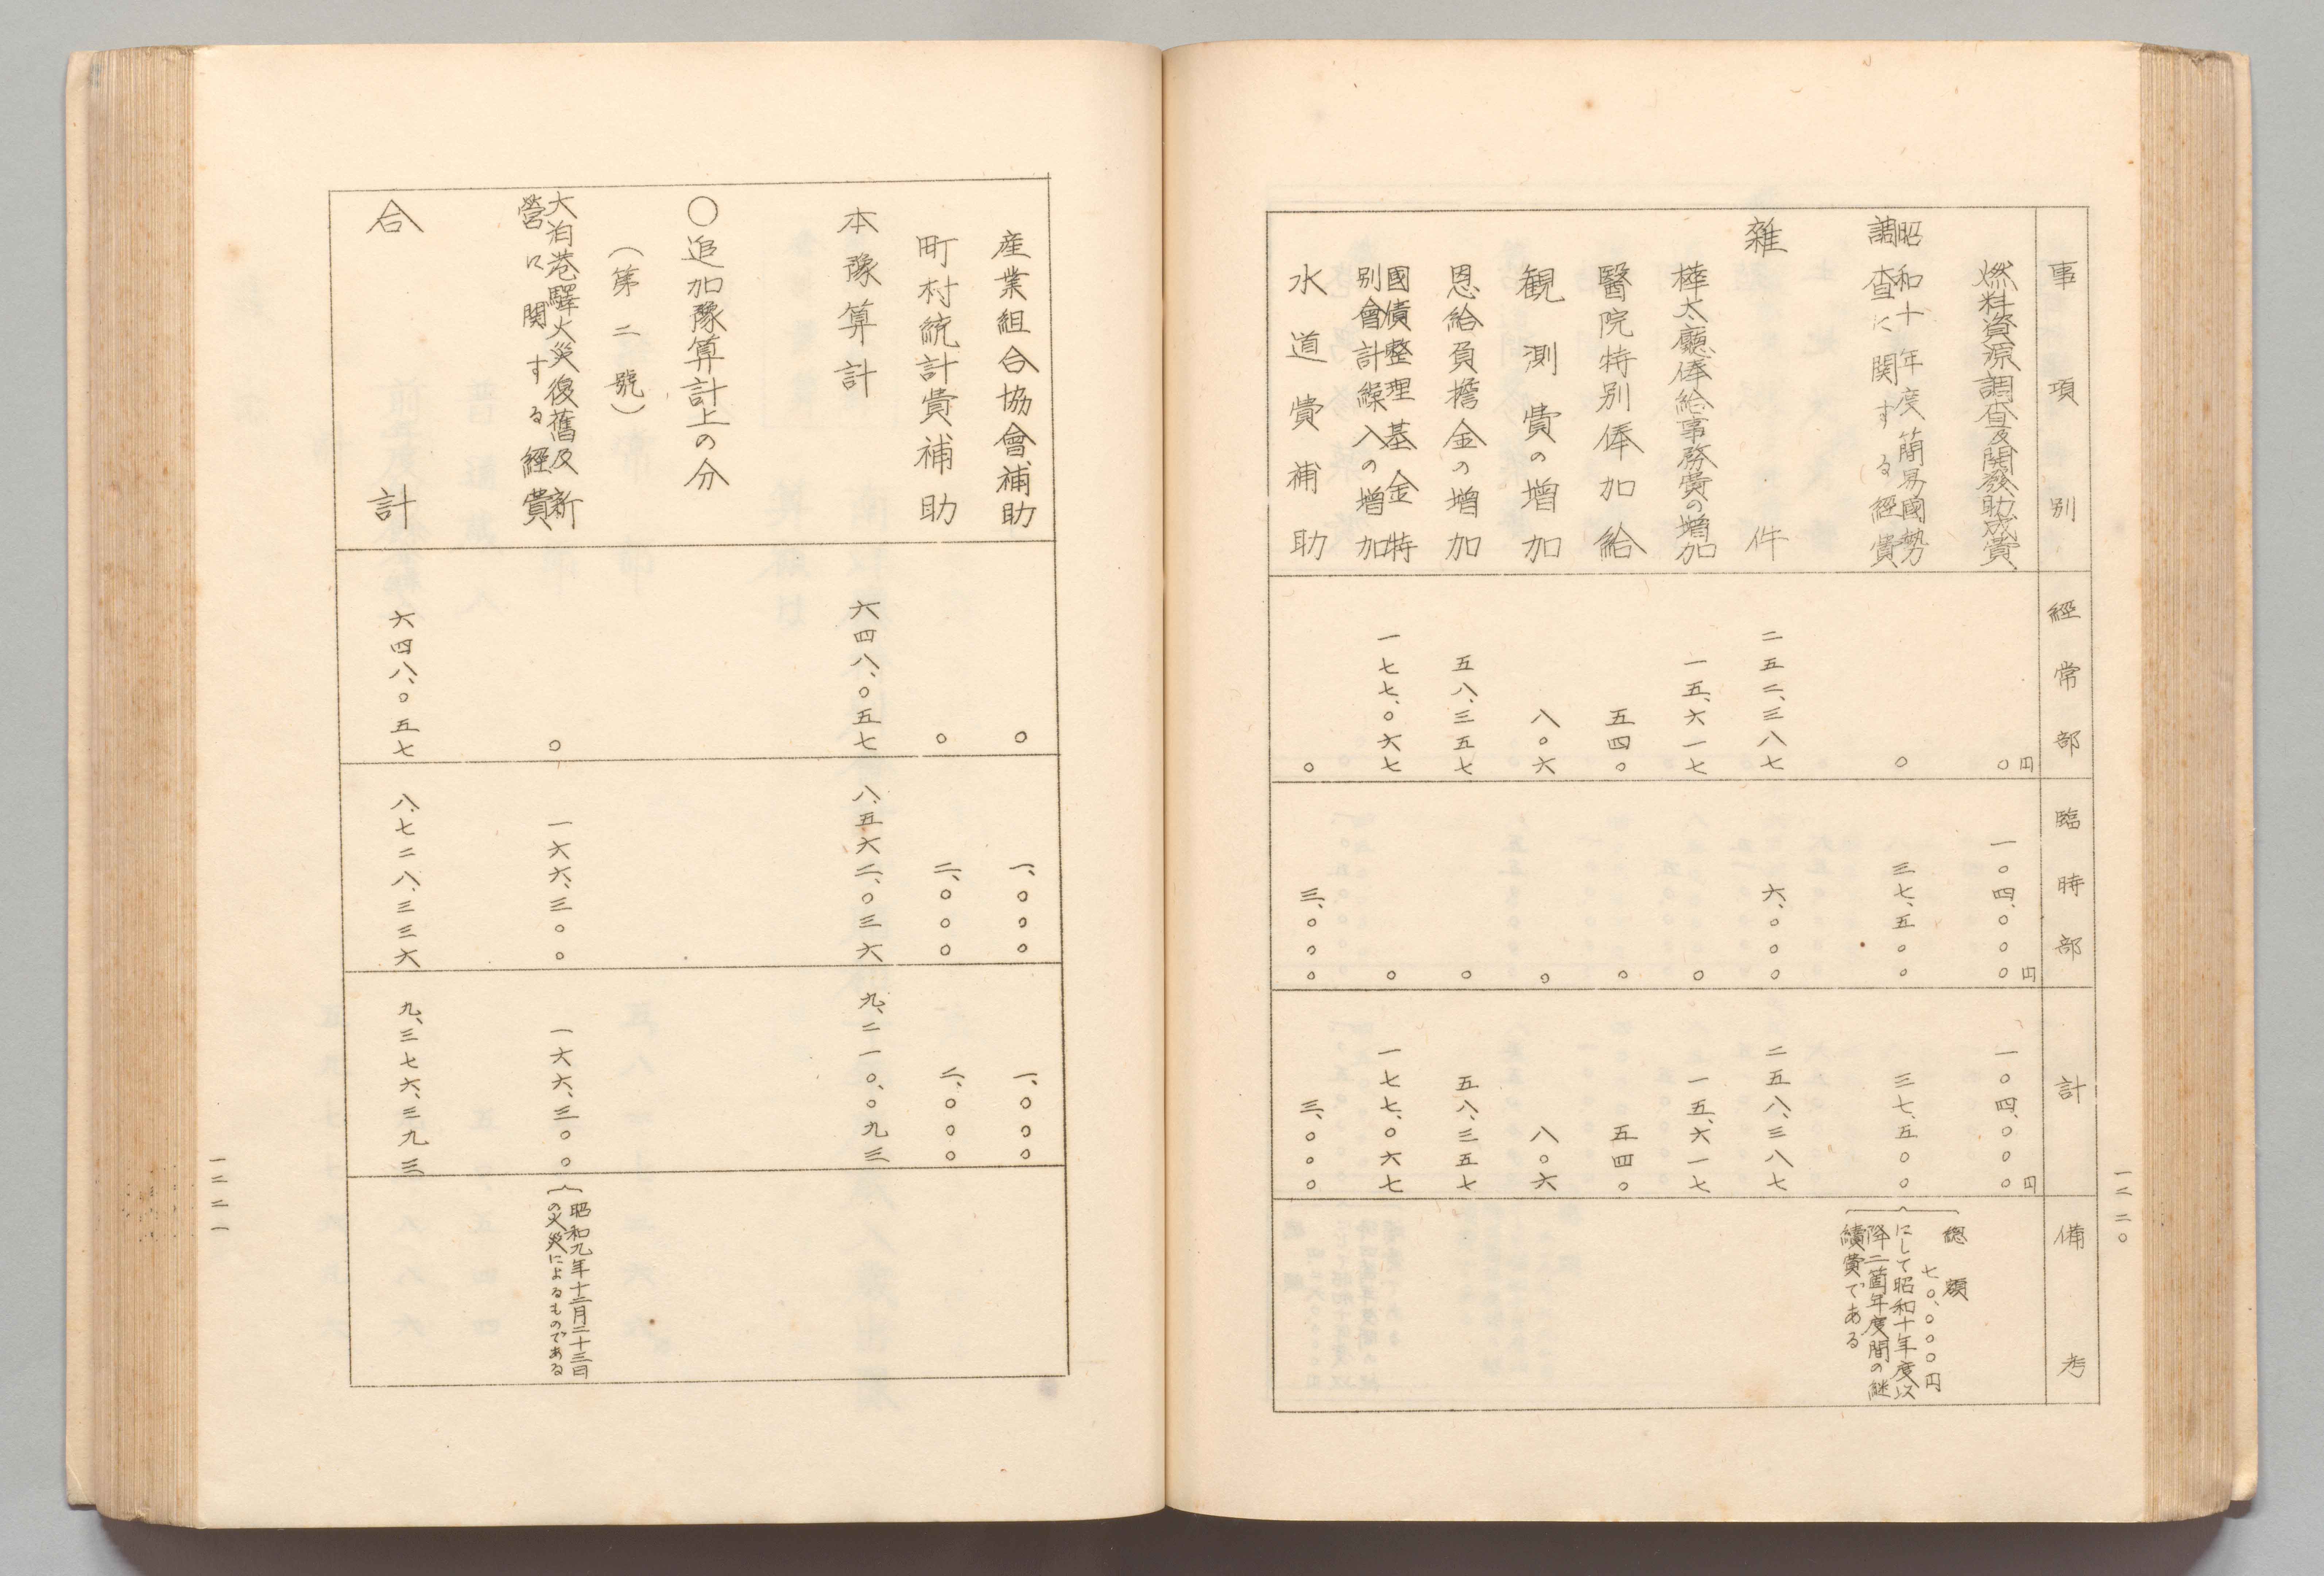 事項別
經常部
臨時部
計
備考
燃料資源調査及開發助成費
〇円
一〇四、〇〇〇円
一〇四、〇〇〇円
昭和十年度簡易國勢
調査に関する經費
〇
三七、五〇〇
三七、五〇〇
總額
七〇、〇〇〇円
にして昭和十年度以
降二箇年度間の継
續費である
雜件
二五二、三八七
六、〇〇〇
二五八、三八七
樺太廳俸給事務費の増加
一五、六一七
〇
一五、六一七
醫院特別俸加給
五四〇
〇
五四〇
観測費の増加
八〇六
〇
八〇六
恩給負擔金の増加
五八、三五七
〇
五八、三五七
國債整理基金特
別會計繰入の増加
一七七、〇六七
〇
一七七、〇六七
水道費補助
〇
三、〇〇〇
三、〇〇〇
一二二〇
産業組合協會補助
〇
一、〇〇〇
一、〇〇〇
町村統計費補助
〇
二、〇〇〇
二、〇〇〇
本豫算計
六四八、〇五七
八、五六二、〇三六
九、二一〇、〇九三
〇追加豫算計上の分
（第二號）
大泊港驛火災復舊及新
營に関する經費
〇
一六六、三〇〇
一六六、三〇〇
昭和九年十二月二十三日
の火災によるものである
合計
六四八、〇五七
八、七二八、三三六
九、三七六、三九三
一二二一